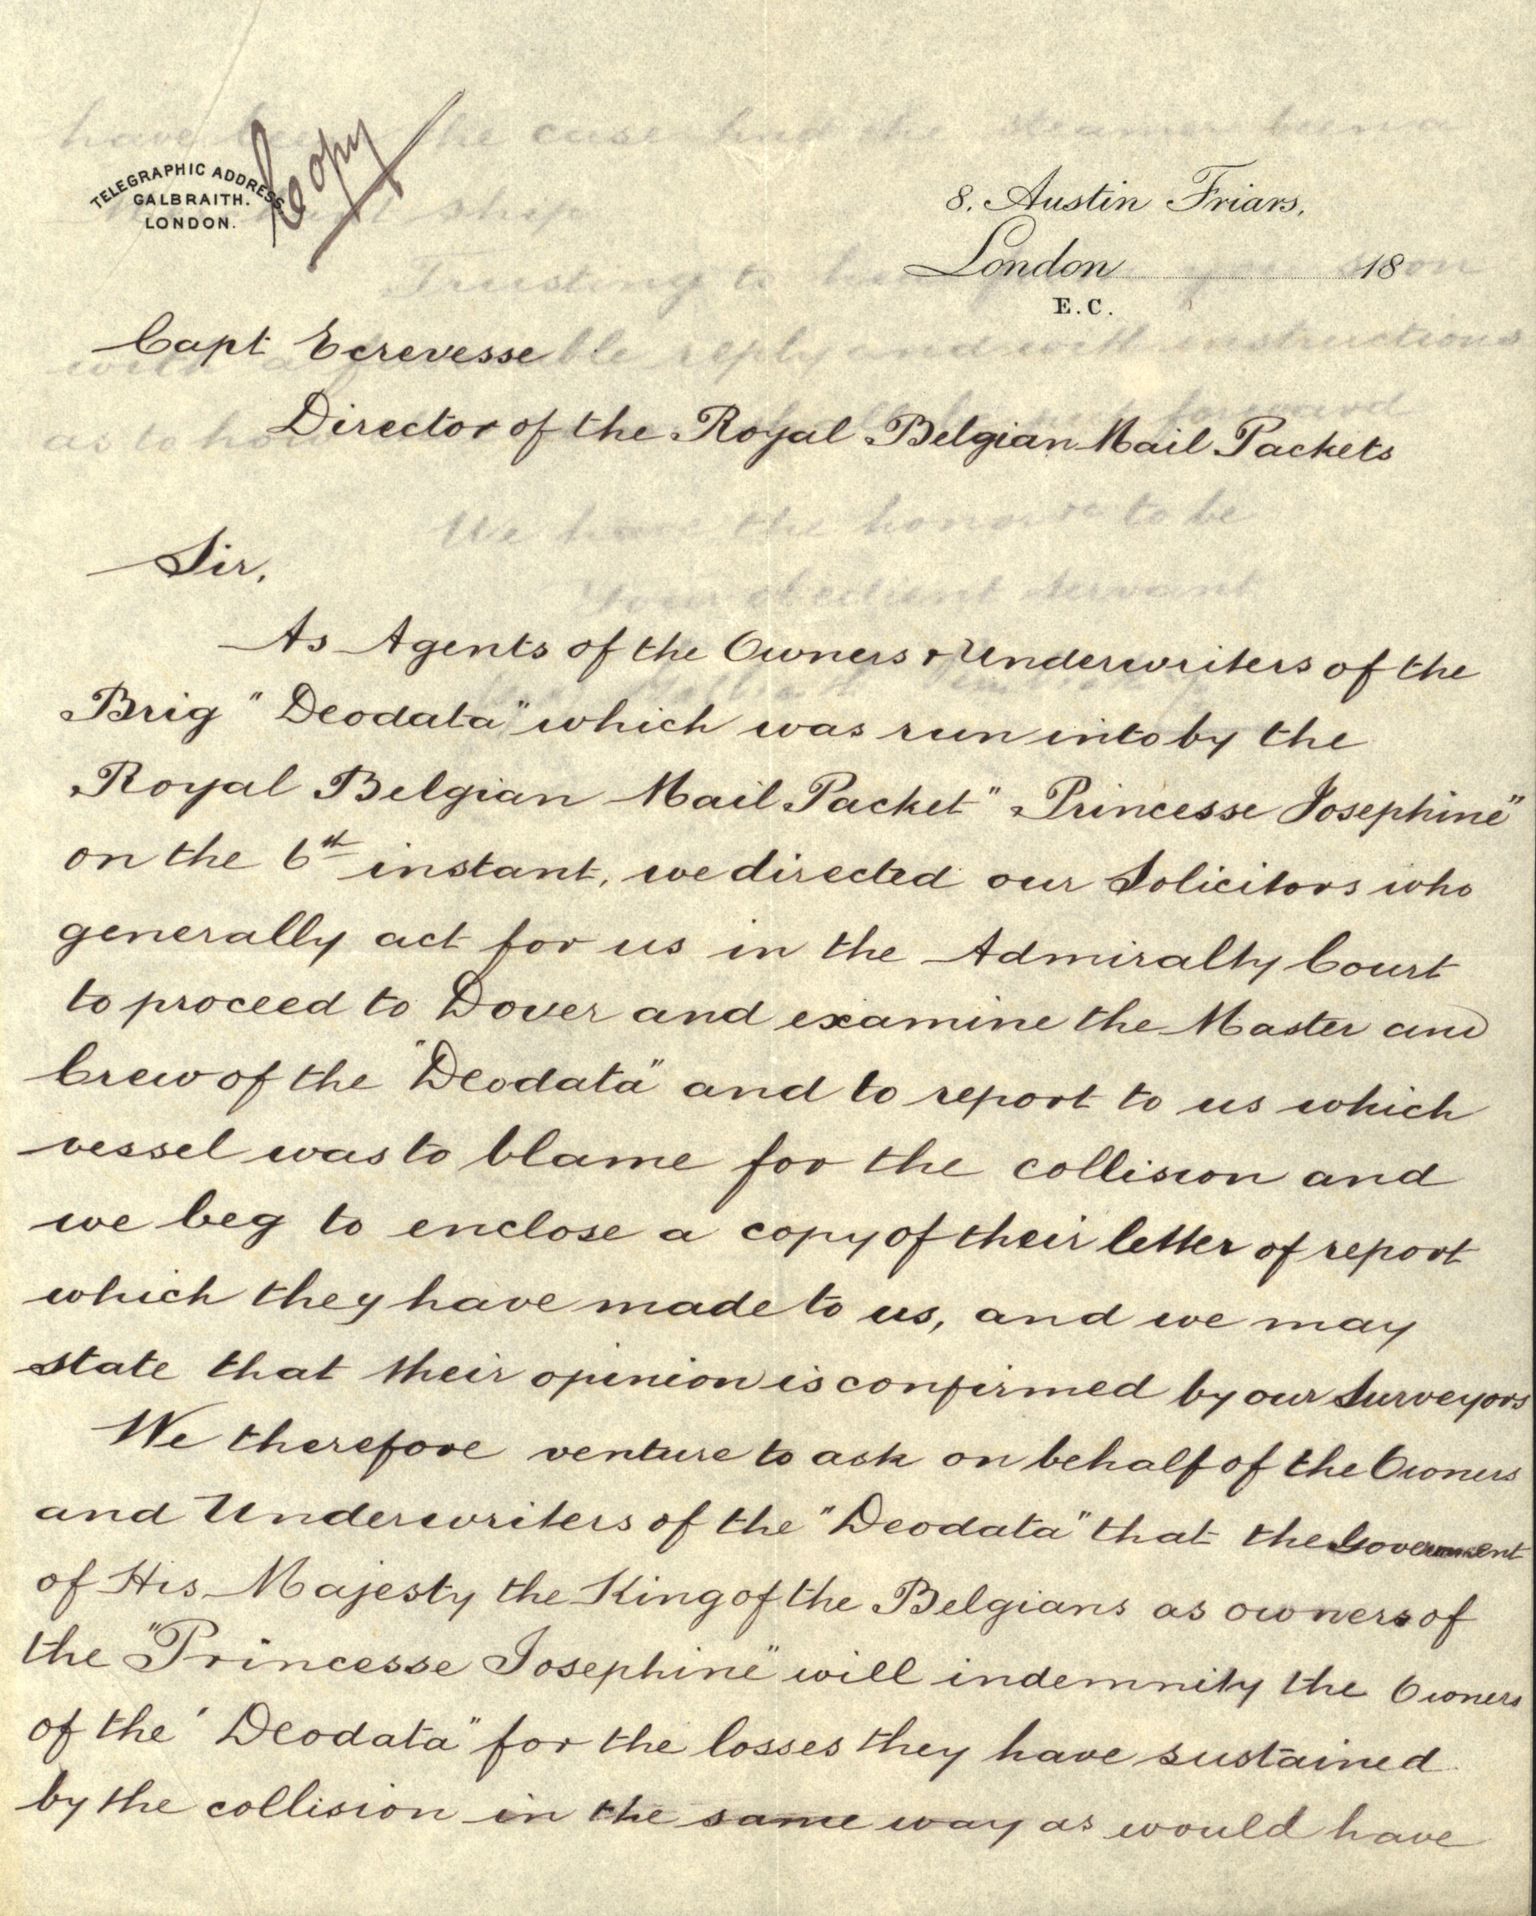 Copy
TELEGRAPHIC ADDRESS.
GALBRAITH.
LONDON.
8, Austin Friars,
London 18
E.C.
Capt Ecrevesse
Director of the Royal Belgian Mail Packets
Sir,
As Agents of the Owners & Underwriters of the
Brig "Deodata" which was run into by the
Royal Belgian Mail Packet "Princesse Josephine"
on the 6th instant, we directed our Solicitors who
generally act for us in the Admiralty Court
to proceed to Dover and examine the Master and
Crew of the "Deodata" and to report to us which
vessel was to blame for the collision and
we beg to enclose a copy of their letter of report
which they have made to us, and we may
state that their opinion is confirmed by our Surveyors
We therefore venture to ask on behalf of the Owners
and Underwriters of the "Deodata" that the Government
of His Majesty the King of the Belgians as owners of
the "Princesse Josephine" will indemnity the Owners
of the ' Deodata" for the losses they have sustained
by the collision in the same way as would have